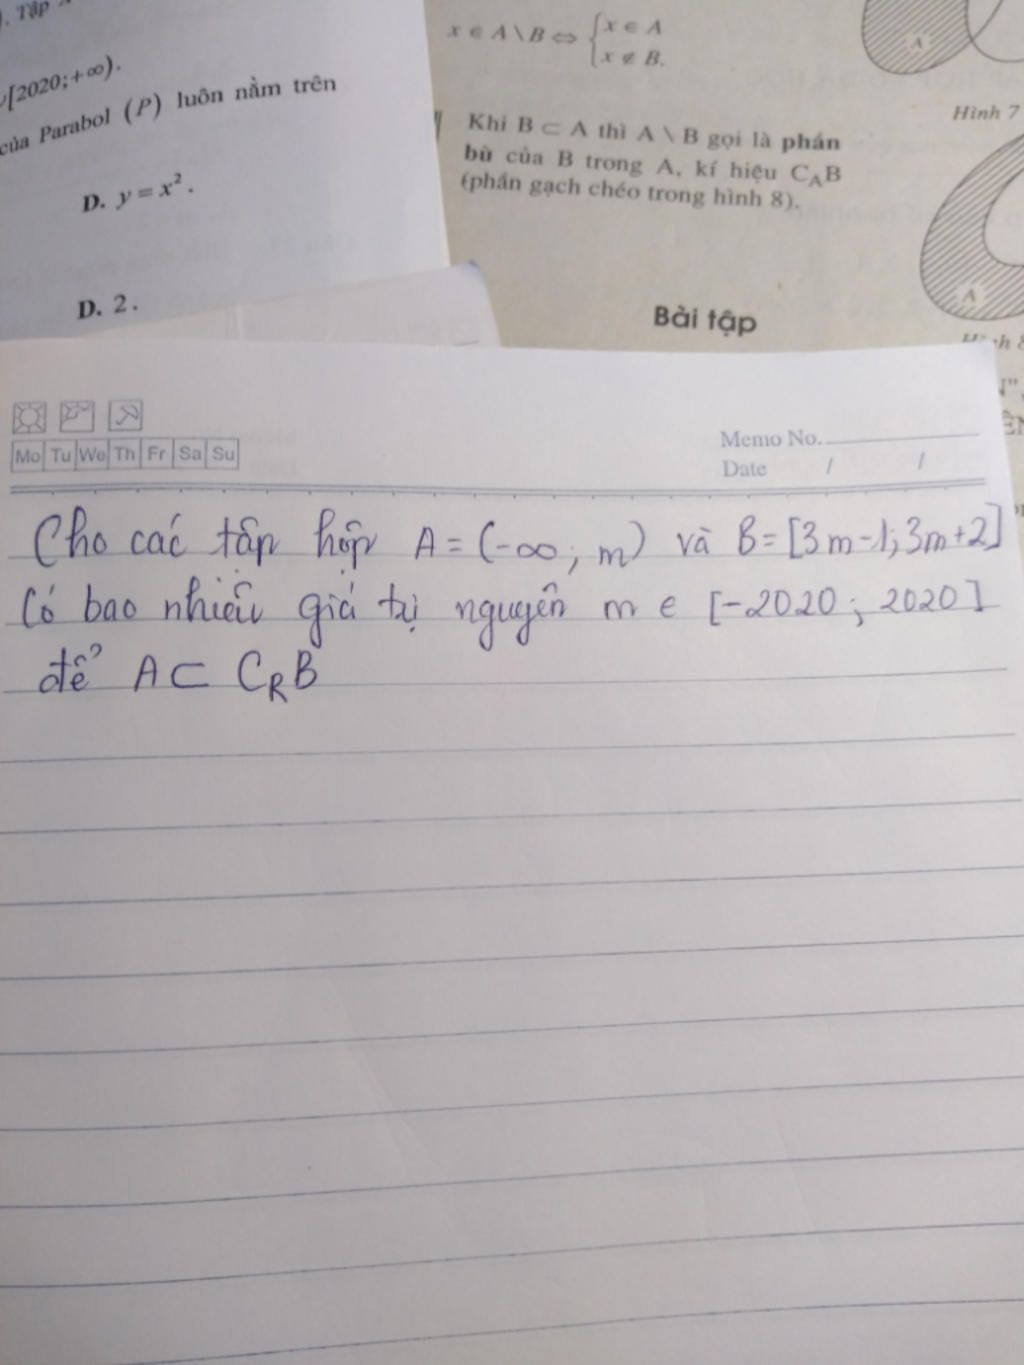 . Tập
[2020;+∞).
của Parabol (P) luôn nằm trên
D. y = x².
D. 2.
x ∈ A \ B ⇔ { x ∈ A
x ∉ B.
A
Hình 7
Khi B ⊂ A thì A \ B gọi là phần
bù của B trong A, kí hiệu C_A B
(phần gạch chéo trong hình 8).
A
Bài tập
Mo Tu We Th Fr Sa Su
Memo No.
Date / /
Cho các tập hợp A = (-∞; m) và B = [3m-1; 3m+2]
Có bao nhiêu giá trị nguyên m ∈ [-2020; 2020]
để A ⊂ C_R B